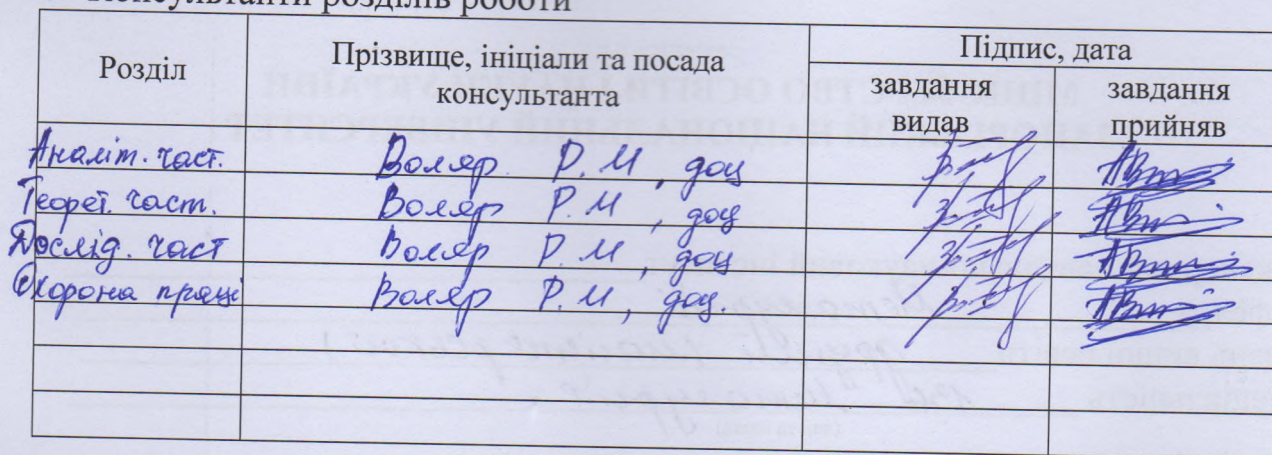 Консультанти розділів роботи
Розділ
Прізвище, ініціали та посада
консультанта
Підпис, дата
завдання
видав
завдання
прийняв
Аналіт. част. Воляр Р.М, доц
Теорет. част. Воляр Р.М, доц
Дослід. част Воляр Р.М, доц
Охорона праці Воляр Р.М, доц.